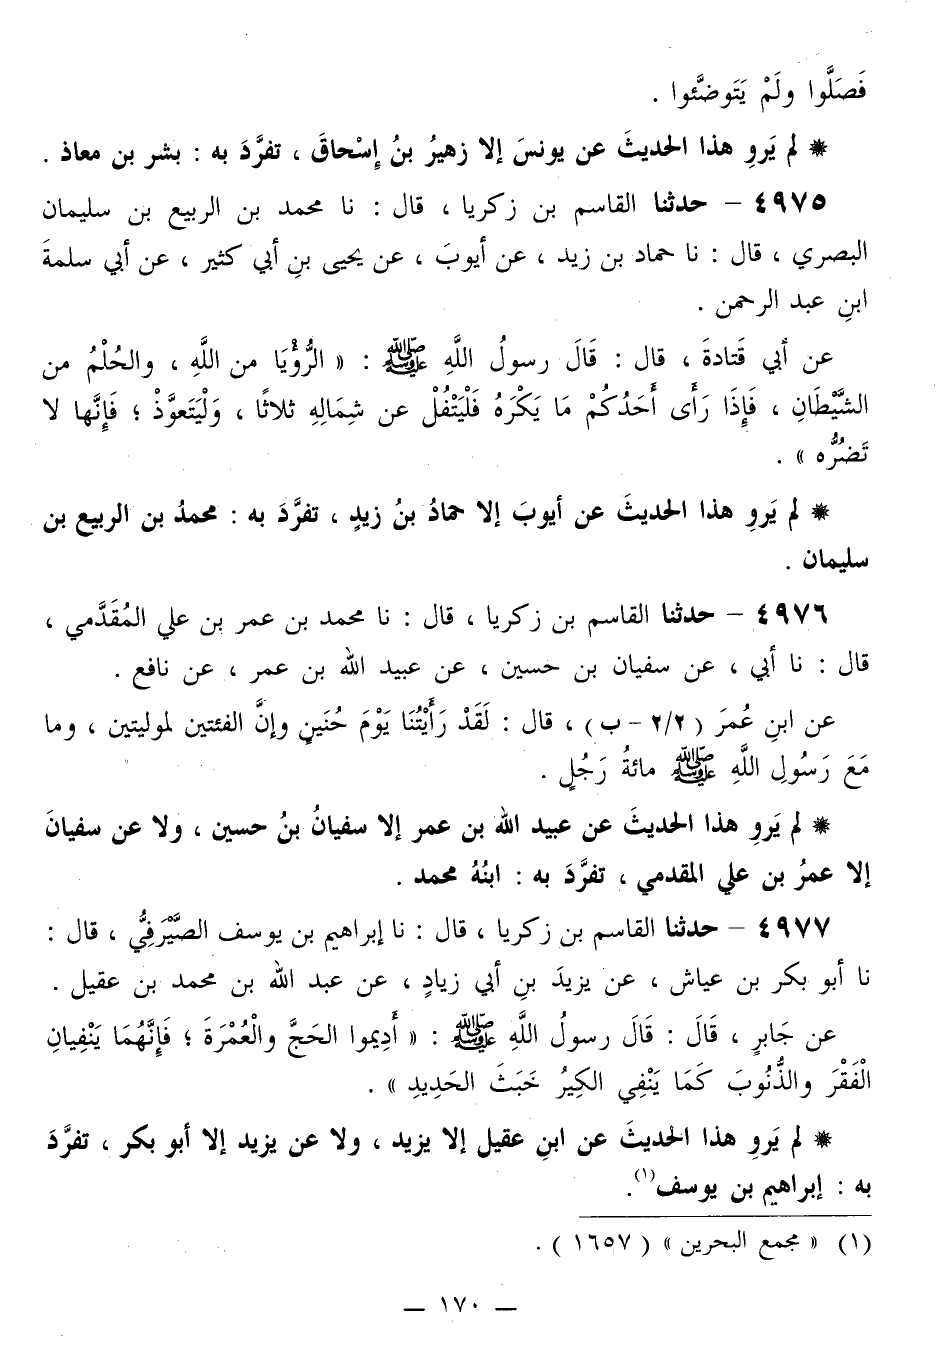 فَصَلَّوا ولَمْ يَتَوضَّئوا .
* لم يَروِ هذا الحديثَ عن يونسَ إلا زهيرُ بنُ إسْحاقَ ، تفرَّدَ به : بشر بن معاذ .
٤٩٧٥ – حدثنا القاسم بن زكريا ، قال : نا محمد بن الربيع بن سليمان
البصري ، قال : نا حماد بن زيد ، عن أيوبَ ، عن يحيى بنِ أبي كثير ، عن أبي سلمةَ
ابنِ عبد الرحمن .
عن أبي قَتادةَ ، قال : قَالَ رسولُ اللَّهِ ﷺ : « الرُّؤْيَا من اللَّهِ ، والحُلْمُ من
الشَّيْطَانِ ، فَإِذَا رَأَى أَحَدُكُمْ مَا يَكْرَهُ فَلْيَتْفُلْ عن شِمَالِهِ ثلاثًا ، وَلْيَتَعوَّذْ ؛ فَإِنَّها لا
تَضرُّه » .
* لم يَروِ هذا الحديثَ عن أيوبَ إلا حمادُ بنُ زيدٍ ، تفرَّدَ به : محمدُ بن الربيع بن
سليمان .
٤٩٧٦ – حدثنا القاسم بن زكريا ، قال : نا محمد بن عمر بن علي المُقَدَّمي ،
قال : نا أبي ، عن سفيان بن حسين ، عن عبيد الله بن عمر ، عن نافع .
عن ابنِ عُمرَ ( ٢/٢ – ب ) ، قال : لَقَدْ رَأَيْتُنَا يَوْمَ حُنَينٍ وإنَّ الفئتين لموليتين ، وما
مَعَ رَسُولِ اللَّهِ ﷺ مائةُ رَجُلٍ .
* لم يَروِ هذا الحديثَ عن عبيد الله بن عمر إلا سفيانُ بنُ حسين ، ولا عن سفيانَ
إلا عمرُ بن علي المقدمي ، تفرَّدَ به : ابنُهُ محمد .
٤٩٧٧ – حدثنا القاسم بن زكريا ، قال : نا إبراهيم بن يوسف الصَّيْرَفِيُّ ، قال :
نا أبو بكر بن عياش ، عن يزيدَ بنِ أبي زيادٍ ، عن عبد الله بن محمد بن عقيل .
عن جَابرٍ ، قَالَ : قَالَ رسولُ اللَّهِ ﷺ : « أَدِيموا الحَجَّ والْعُمْرَةَ ؛ فَإِنَّهُمَا يَنْفِيانِ
الْفَقْرَ والذُّنُوبَ كَمَا يَنْفِي الكِيرُ خَبَثَ الحَدِيدِ » .
* لم يَروِ هذا الحديثَ عن ابنِ عقيل إلا يزيد ، ولا عن يزيد إلا أبو بكر ، تفرَّدَ
به : إبراهيم بن يوسف(١).
(١) « مجمع البحرين » ( ١٦٥٧ ) .
— ١٧٠ —